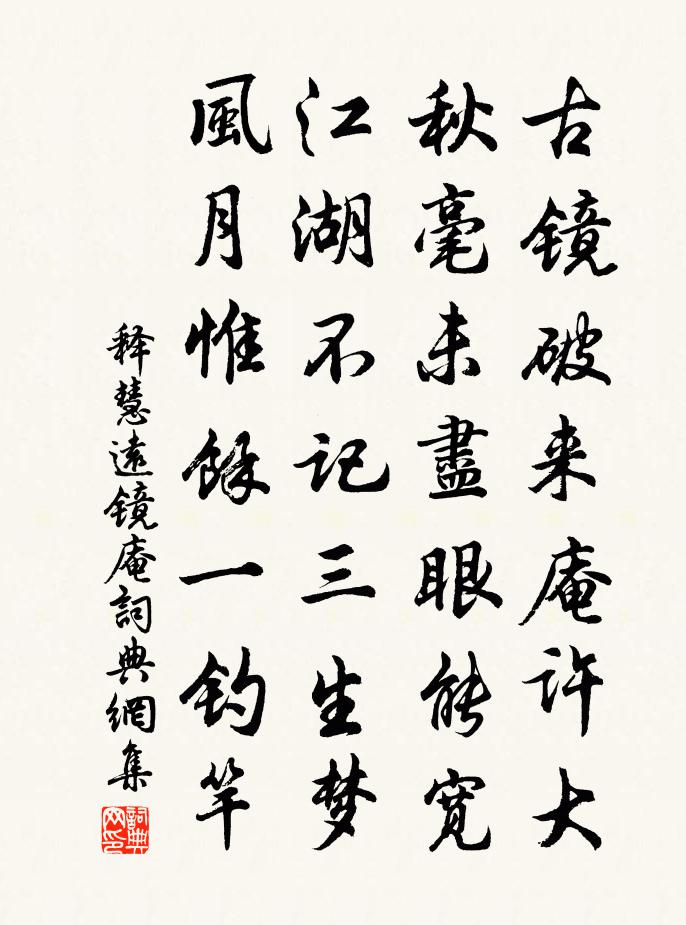 古镜破来庵许大
秋毫未盡眼能寬
江湖不记三生梦
風月惟餘一钓竿
释慧遠镜庵詞典網集
詞典網印